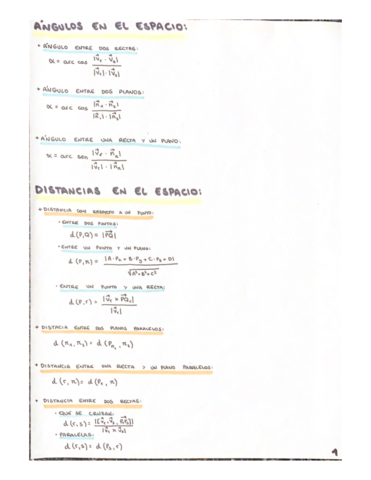 ÁNGULOS EN EL ESPACIO:
+ ÁNGULO ENTRE DOS RECTAS:
α = arc cos |v⃗r · v⃗s| / |v⃗r| · |v⃗s|
+ ÁNGULO ENTRE DOS PLANOS:
α = arc cos |n⃗1 · n⃗2| / |n⃗1| · |n⃗2|
+ ÁNGULO ENTRE UNA RECTA Y UN PLANO:
α = arc sen |v⃗r · n⃗π| / |v⃗r| · |n⃗π|
DISTANCIAS EN EL ESPACIO:
+ DISTANCIA CON RESPECTO A UN PUNTO:
· ENTRE DOS PUNTOS:
d (P,Q) = |PQ⃗|
· ENTRE UN PUNTO Y UN PLANO:
d (P,π) = |A · P1 + B · P2 + C · P3 + D| / √A²+B²+C²
· ENTRE UN PUNTO Y UNA RECTA:
d (P,r) = |v⃗r × PQ⃗r| / |v⃗r|
+ DISTACIA ENTRE DOS PLANOS PARALELOS:
d (π1, π2) = d (Pπ1, π2)
+ DISTANCIA ENTRE UNA RECTA Y UN PLANO PARALELOS:
d (r, π) = d (Pr, π)
+ DISTANCIA ENTRE DOS RECTAS:
· QUE SE CRUZAN:
d (r,s) = |[v⃗r, v⃗s, ]| / |v⃗r × v⃗s|
· PARALELAS:
d (r,s) = d (Ps, r)
1